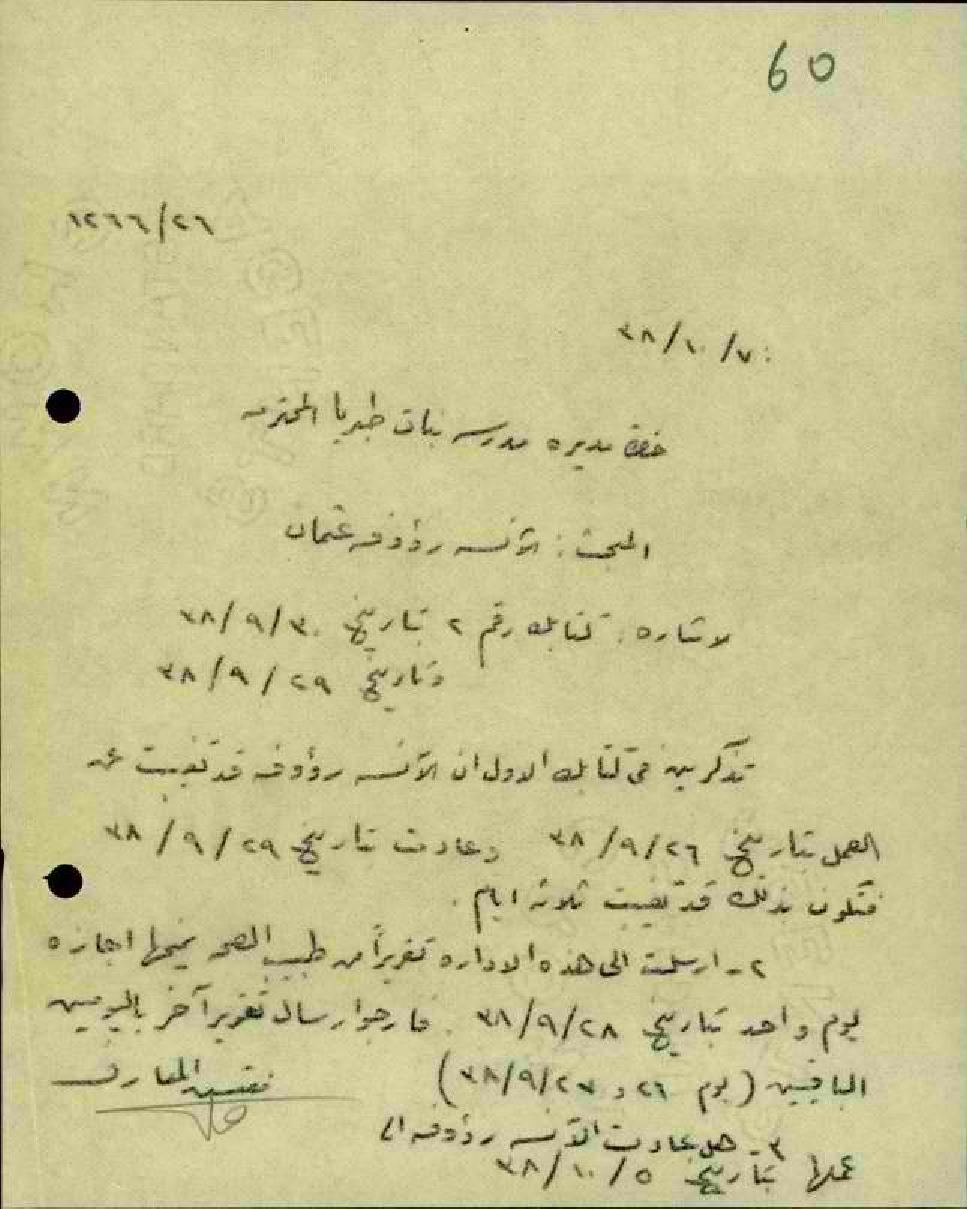 60
١٢٦٦/٢٦
٣٨/١٠/٧
حضرة مديره مدرسه بنات طبريا المحترمه
المبحث : الآنسه رؤوفه عثمان
الاشاره : كتابك رقم ٢ بتاريخ ٣٨/٩/٣٠
وتاريخ ٣٨/٩/٢٩
تذكرين في كتابك الاول ان الآنسه رؤوفه قد تغيبت عن
العمل بتاريخ ٣٨/٩/٢٦ وعادت بتاريخ ٣٨/٩/٢٩
فتكون بذلك قد تغيبت ثلاثه ايام .
٢- ارسلت الى هذه الاداره تقريراً من طبيب الصحه يمنحها اجازه
ليوم واحد بتاريخ ٣٨/٩/٢٨ . فارجو ارسال تقرير آخر باليومين
الباقيين (يوم ٢٦ و ٣٨/٩/٢٧)
مفتش المعارف
٣- هل عادت الآنسه رؤوفه الى
عملها بتاريخ ٣٨/١٠/٥